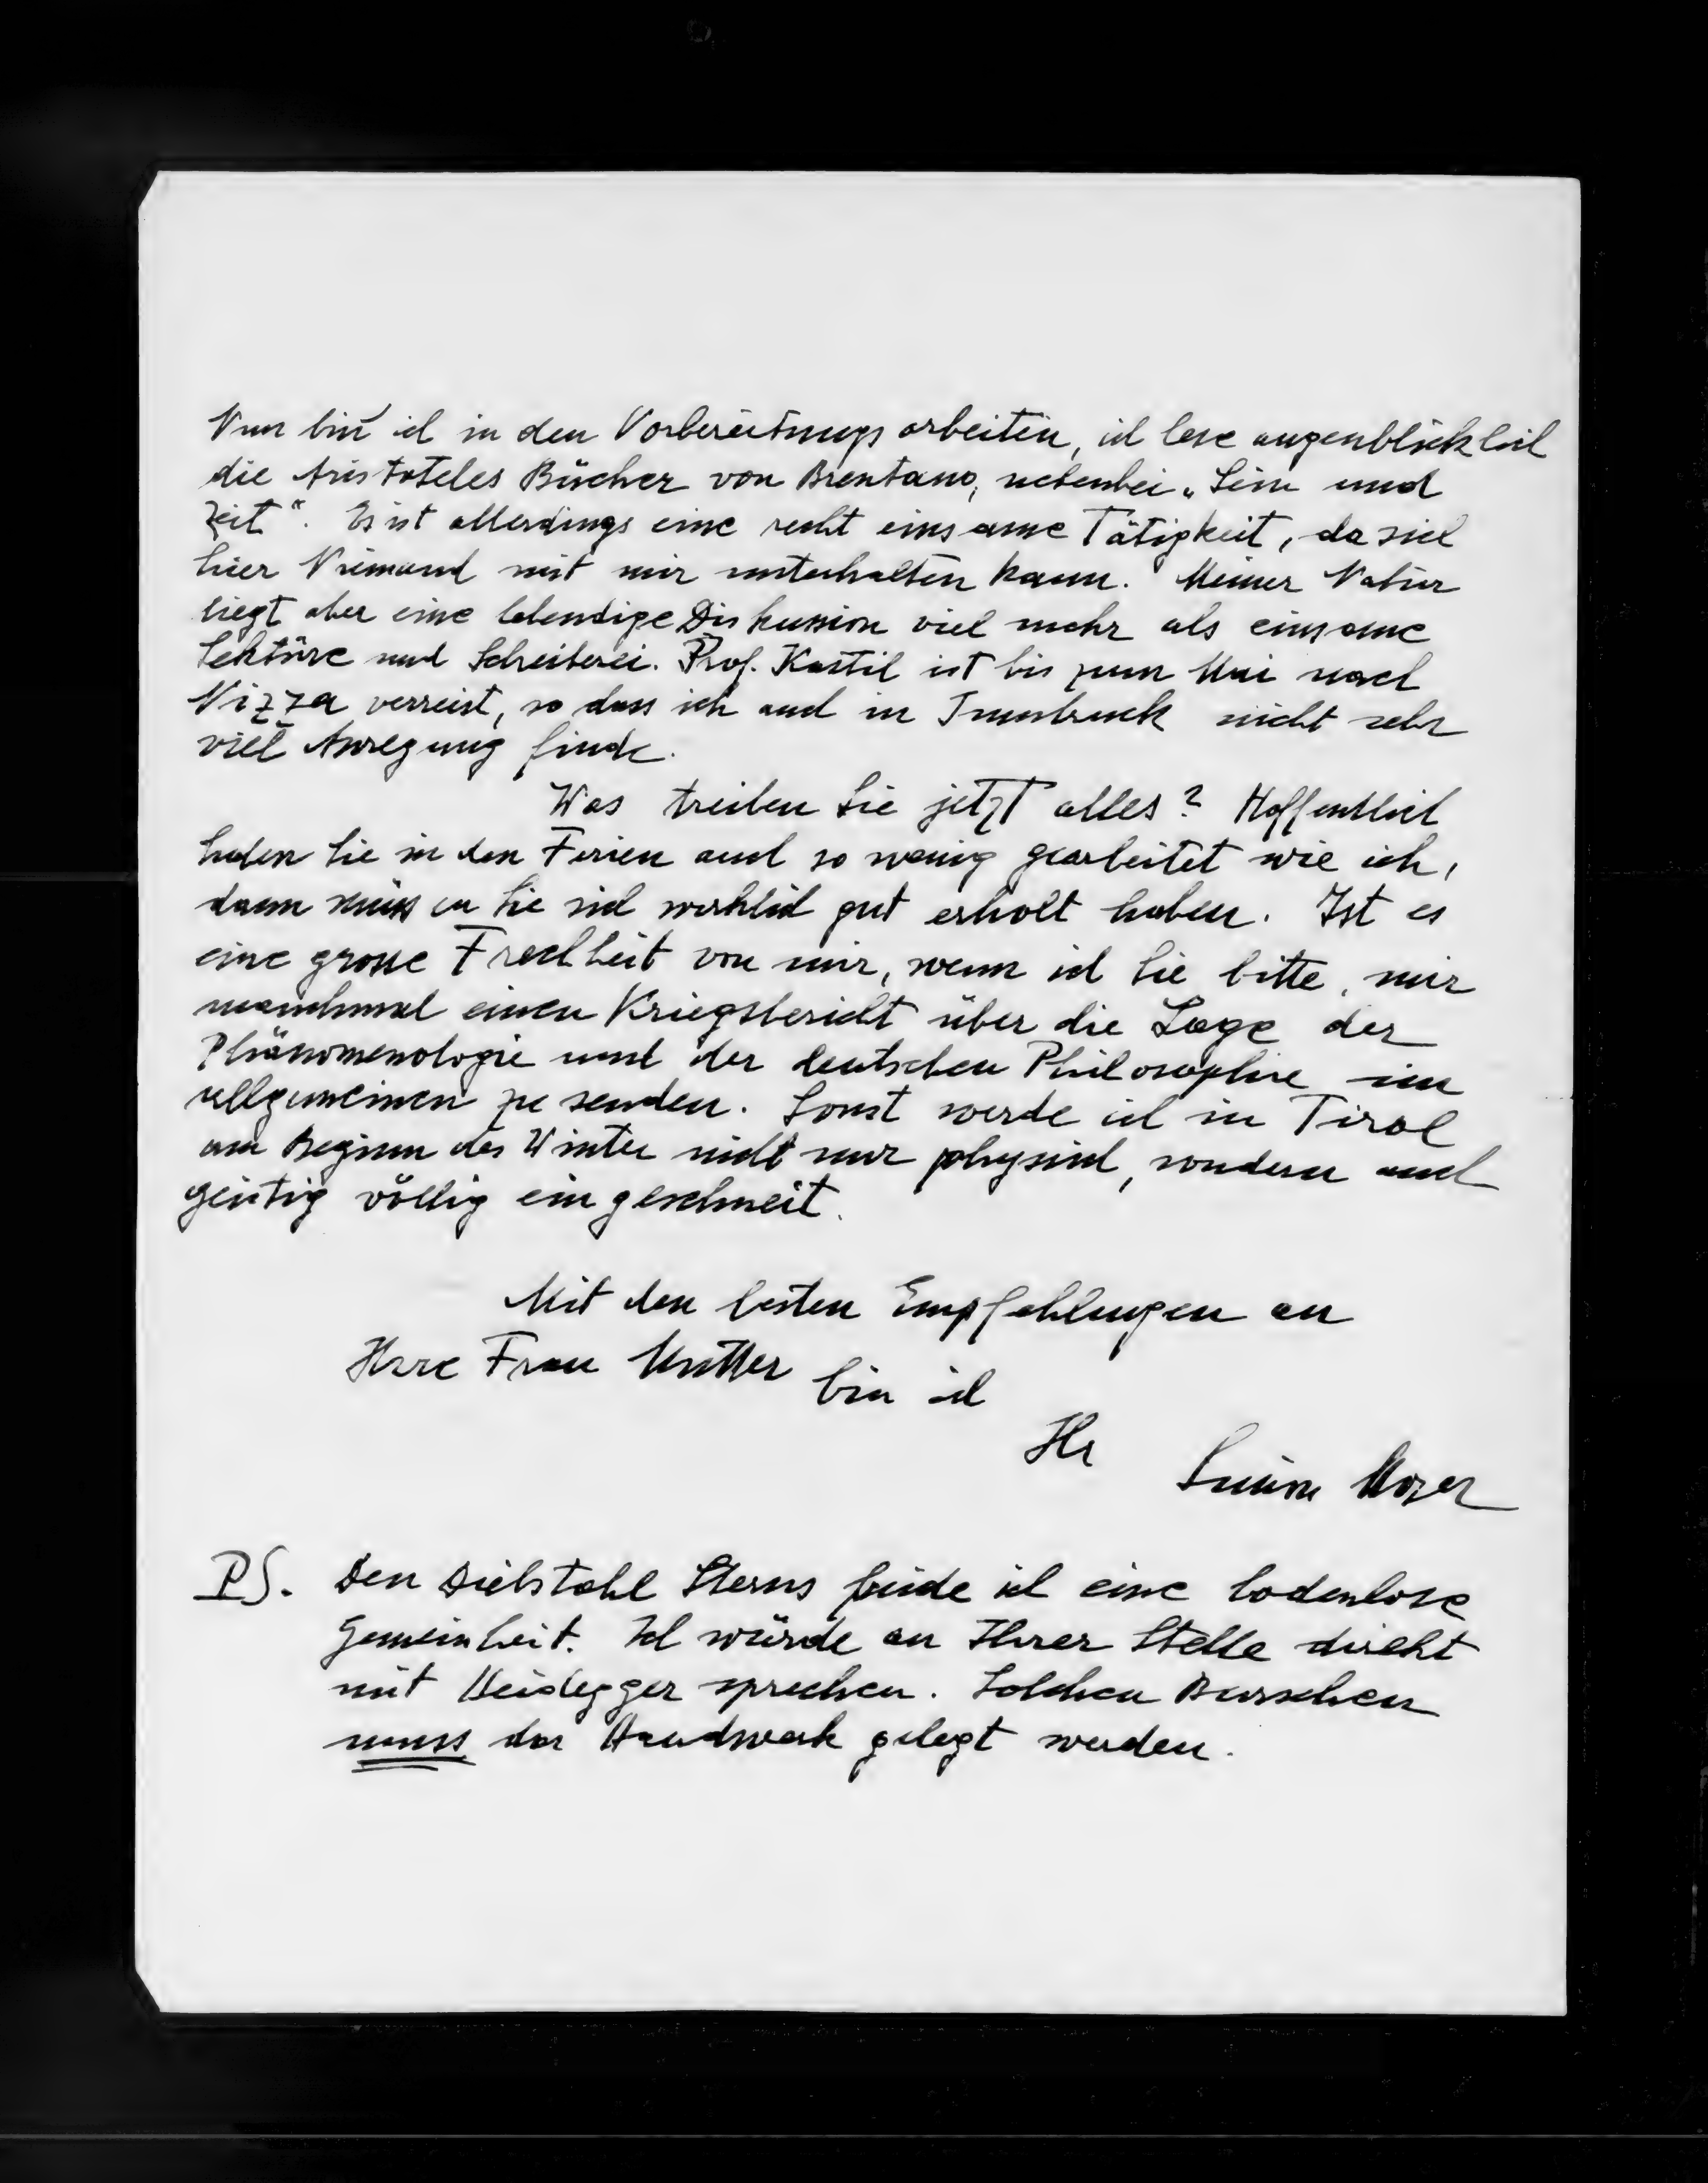 Nun bin ich in den Vorbereitungsarbeiten, ich lese augenblicklich
die Aristoteles Bücher von Brentano, nebenbei „Sein und
Zeit“. Es ist allerdings eine recht einsame Tätigkeit, da sich
hier Niemand mit mir unterhalten kann. Meiner Natur
liegt aber eine lebendige Diskussion viel mehr als einsame
Lektüre und Schreiberei. Prof. Kastil ist bis zum Mai nach
Nizza verreist, so dass ich auch in Innsbruck nicht sehr
viel Anregung finde.
Was treiben Sie jetzt alles? Hoffentlich
haben Sie in den Ferien auch so wenig gearbeitet wie ich,
dann müssen Sie sich wirklich gut erholt haben. Ist es
eine grosse Frechheit von mir, wenn ich Sie bitte, mir
manchmal einen Kriegsbericht über die Lage der
Phänomenologie und der deutschen Philosophie im
allgemeinen zu senden. Sonst werde ich in Tirol
am Beginn des Winter nicht nur physisch, sondern auch
geistig völlig eingeschneit.
Mit den besten Empfehlungen an
Ihre Frau Mutter bin ich
Ihr Simon Moser
PS. Den Diebstahl Sterns finde ich eine bodenlose
Gemeinheit. Ich würde an Ihrer Stelle direkt
mit Heidegger sprechen. Solchen Burschen
muss das Handwerk gelegt werden.